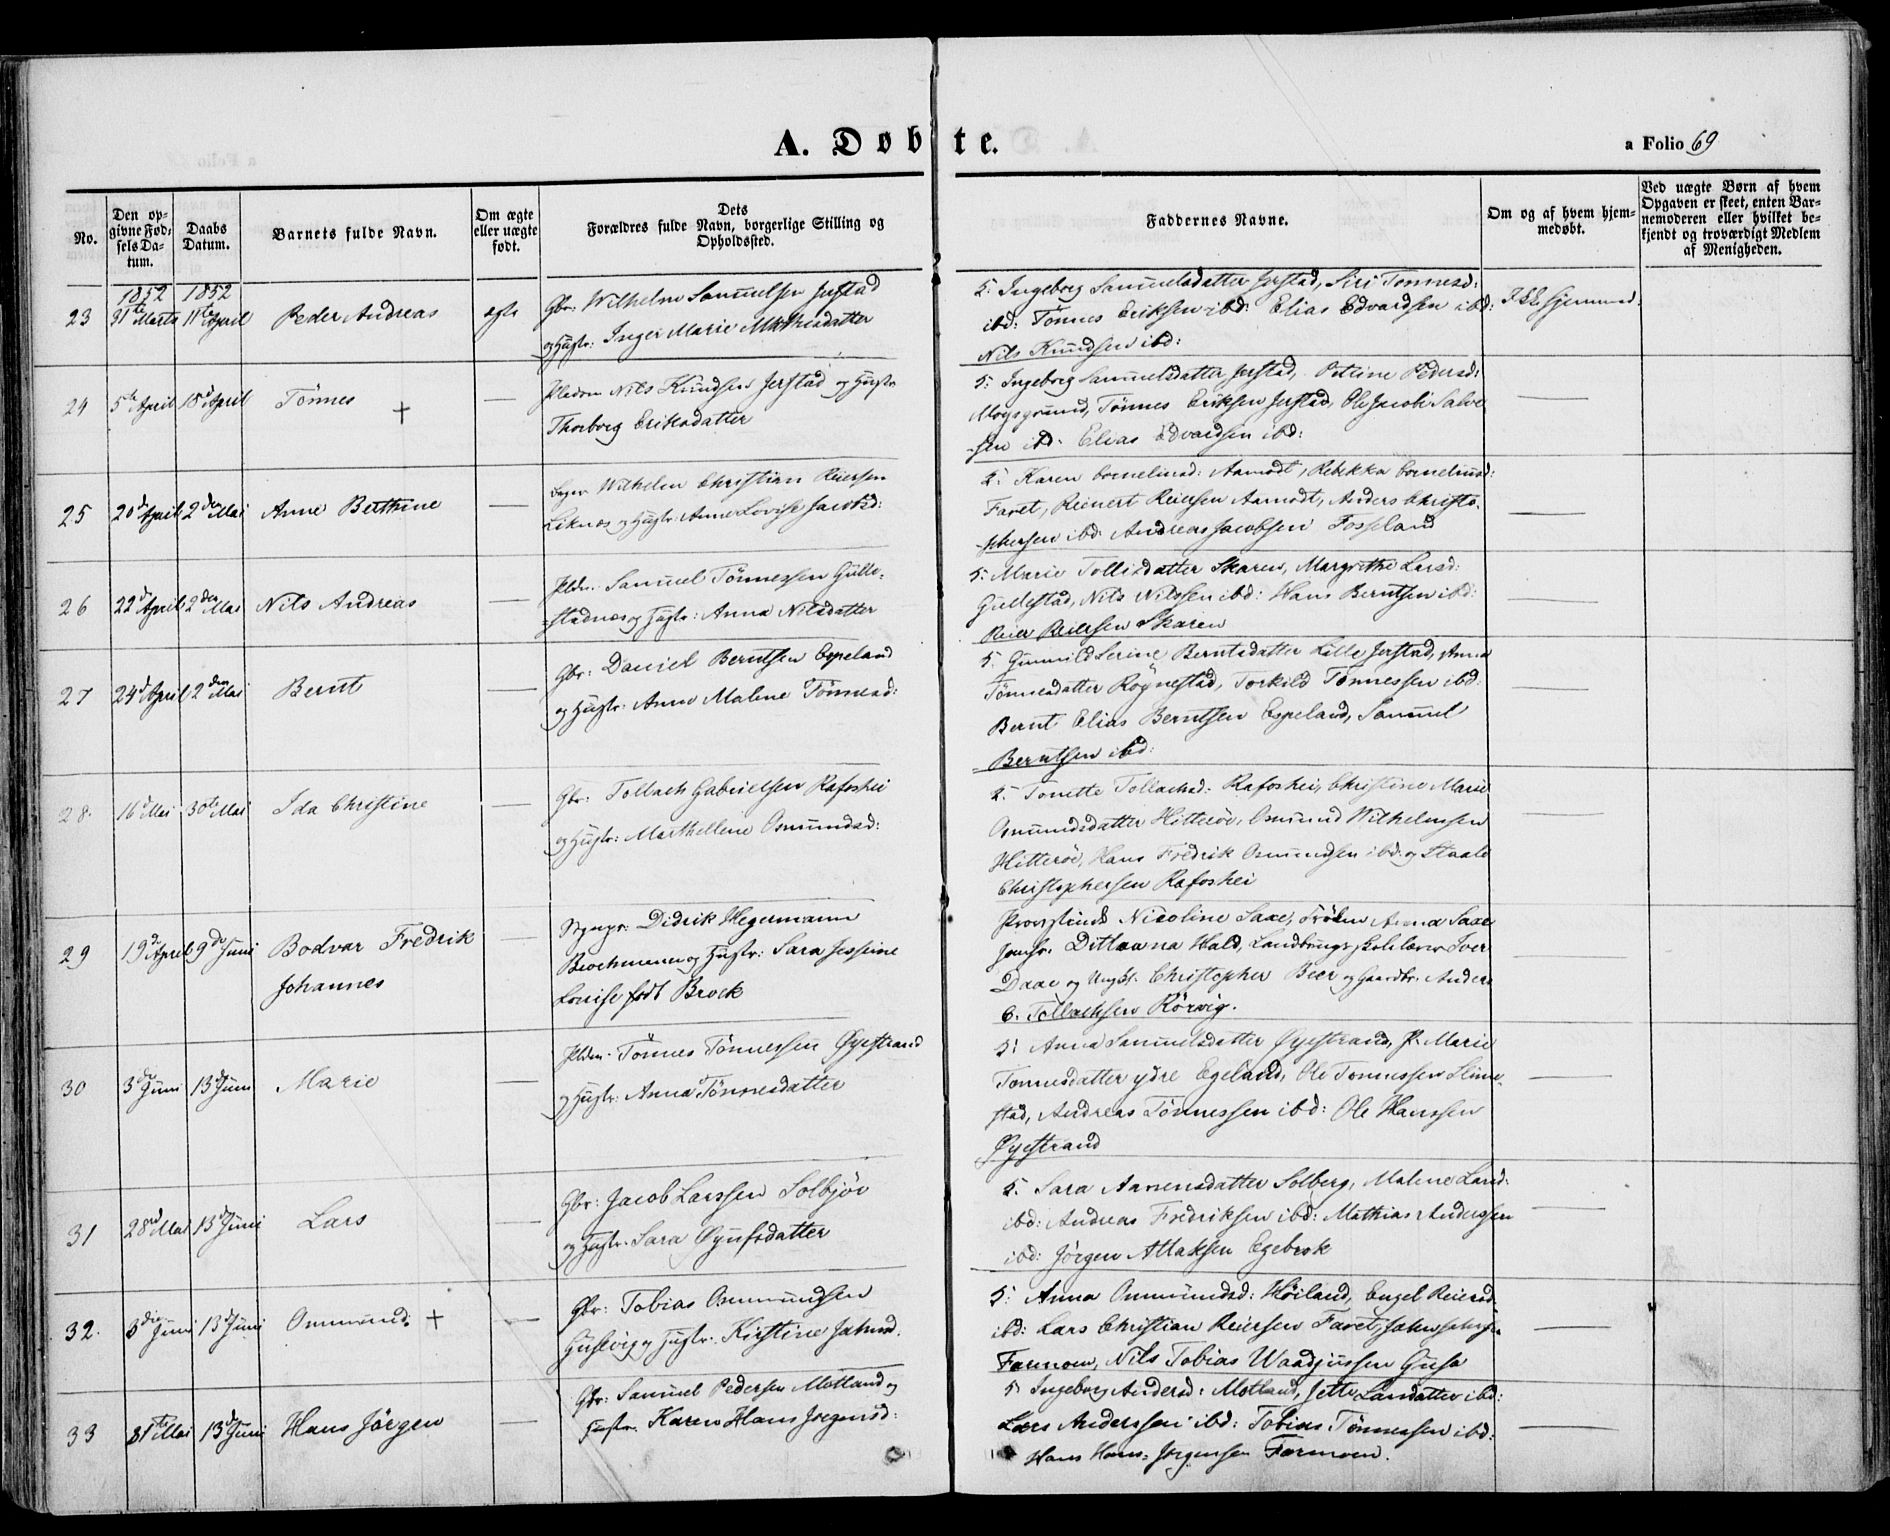 A. Døbte.
a Folio 69
No.
Den opgivne Fødsels Datum.
Daabs Datum.
Barnets fulde Navn.
Om ægte eller uægte født.
Dets Forældres fulde Navn, borgerlige Stilling og Opholdssted.
Faddernes Navne.
Om og af hvem hjemmedøbt.
Ved uægte Børn af hvem Opgaven er skeet, enten Barnemoderen eller hvilket bekjendt og troværdigt Medlem af Menigheden.
1852 1852
23 31te Marts 11te April Peder Andreas ægte
Gbr: Wilhelm Samuelsen Jerstad
og Hustr: Inger Marie Mathiasdatter
5: Ingeborg Samuelsdatter Jerstad, Siri Tønnesd:
ibd: Tønnes Eriksen ibd: Elias Edvardsen ibd:
Nils Knudsen ibd:
Ikke hjemmed:
24 5te April 18d April Tönnes + —
Pladsm Nils Knudsen Jerstad og Hustr
Thorborg Eriksdatter
5: Ingeborg Samuelsdatter Jerstad, Oline Pedersd:
Tønnes Eriksen Jerstad, Ole Jacob Salve
sen ibd. Elias Edvardsen ibd:
—
25 20d April 2den Mai Anne Berthine —
Wilhelm Christian Reiersen
Liknes og Hustr: Anne Lovise Jacobsd:
5: Karen Corneliusd: Aamodt, Rebekka Corneliusd:
Faret, Reinert Reiersen Aamodt, Anders Christo-
phersen ibd. Andreas Jacobsen Fosseland
—
26 22d April 2den Mai Nils Andreas —
Pldm. Samuel Tønnessen Gulle-
stadnes og Hustr: Anna Nilsdatter
5: Marie Tollisdatter Skaren, Margrethe Larsd:
Gullestad, Nils Nilssen ibd: Hans Berntsen ibd:
Reier Reiersen Skaren
—
27 24d April 2den Mai Bernt —
Gbr: Daniel Berntsen Espeland
og Hustr: Anne Malene Tønnesd:
5. Gunnild Serine Berntsdatter Lille Jerstad, Anna
Tønnesdatter Røgnestad, Torkild Tønnessen ibd.
Bernt Elias Berntsen Espeland, Samuel
Berntsen ibd:
—
28. 16d Mai 30te Mai Ida Christine —
Gbr: Tollach Gabrielsen Rafoshei
og Hustr: Marthellene Osmundsd:
5. Tonette Tollachsd: Rafoshei, Christine Marie
Osmundsdatter Hitterøe, Osmund Wilhelmsen
Hitterøe, Hans Fredrik Osmundsen ibd: og Staale
Christophersen Rafoshei
—
29 19de April 9de Juni Bodvar Fredrik
Johannes
—
Didrik Hegermann
Brochmann og Hustr: Sara Jessine
Louise født Brock
Provstinde Nicoline Saxe, Frøken Anna Saxe
Jomfr. Ditleana Hald, Landbrugsskolelærer Iver
Daae og Ungkl. Christopher Beer og Gaardbr. Anders
6. Tollachsen Rörvig.
—
30 3de Juni 13d Juni Marie —
Pldm. Tönnes Tönnessen Øyestrand
og Hustr: Anna Tönnesdatter
5: Anna Samuelsdatter Øyestrand, P. Marie
Tonnesdatter ydre Egeland, Ole Tonnessen Slime-
stad, Andreas Tönnessen ibd: Ole Hanssen
Øyestrand
—
31 28d Mai 13d Juni Lars —
Gbr: Jacob Larssen Solbjör
og Hustr. Sara Øyufsdatter
5. Sara Aanensdatter Solberg, Malene Larsd:
ibd: Andreas Fredriksen ibd: Mathias Anderssen
ibd: Jörgen Attaksen Egebrok
—
32. 3die Juni 13d Juni Ommund. + —
Gbr: Tobias Ommundsen
Gusevig og Hustr. Kirstine Johnsd.
5: Anna Ommundsd: Höiland, Engel Reiersd.
ibd: Lars Christian Reiersen Faret,
Farmoen, Nils Tobias Waadjussen Guse
33 31te Mai 13d Juni Hans Jörgen —
Gbr: Samuel Pedersen Motland og
Hustr. Karen Hans Jørgensd:
5 Ingeborg Andersd: Motland, Jette Larsdatter ibd:
Lars Anderssen ibd: Tobias Tönnessen ibd:
Hans Hans-Jörgensen Farmoen.
—